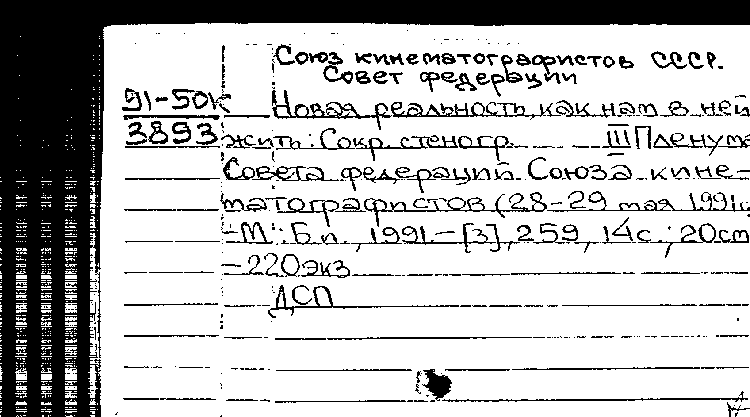 Союз кинематографистов СССР.
Совет федерации
91-50к
3893
Новая реальность, как нам в ней
жить: Сокр. стеногр. III Пленума
Совета федераций Союза кине-
матографистов (28-29 мая 1991
-М.: Б.и., 1991.-[3], 259, 14с.; 20см
-220экз
ДСП